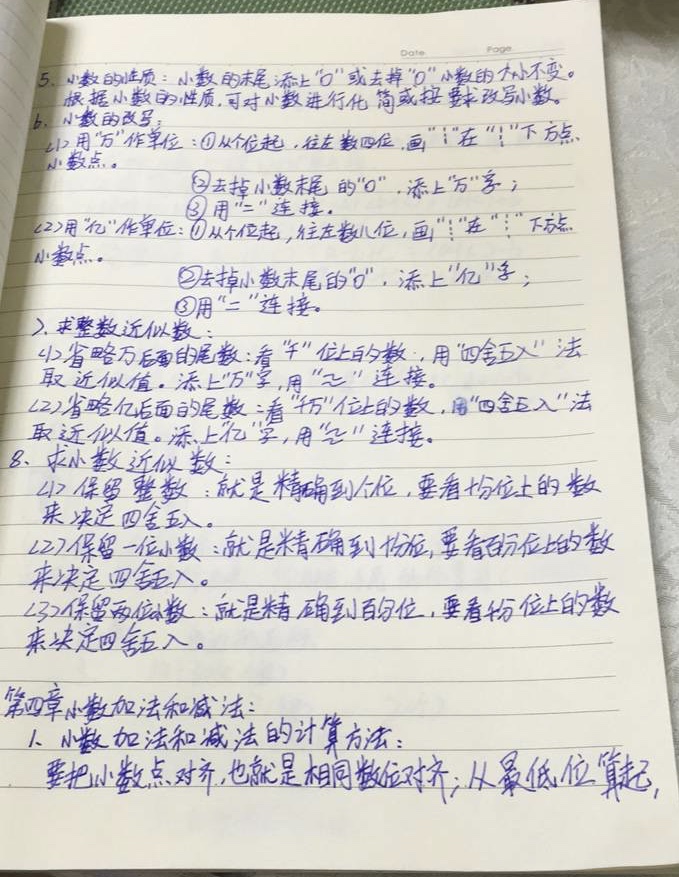 Date Page
5. 小数的性质：小数的末尾添上"0"或去掉"0"小数的大小不变。
根据小数的性质，可对小数进行化简或按要求改写小数。
6. 小数的改写：
(1)用"万"作单位：①从个位起，往左数四位，画"┆"在"┆"下方点
小数点。
②去掉小数末尾的"0"，添上"万"字；
③用"="连接。
(2)用"亿"作单位：①从个位起，往左数八位，画"┆"在"┆"下方点
小数点。
②去掉小数末尾的"0"，添上"亿"字；
③用"="连接。
7. 求整数近似数：
(1)省略万后面的尾数：看"千"位上的数，用"四舍五入"法
取近似值。添上"万"字，用"≈"连接。
(2)省略亿后面的尾数：看"千万"位上的数，用"四舍五入"法
取近似值。添上"亿"字，用"≈"连接。
8. 求小数近似数：
(1)保留整数：就是精确到个位，要看十份位上的数
来决定四舍五入。
(2)保留一位小数：就是精确到十份位，要看百分位上的数
来决定四舍五入。
(3)保留两位小数：就是精确到百分位，要看千份位上的数
来决定四舍五入。
第四章小数加法和减法：
1、小数加法和减法的计算方法：
要把小数点对齐，也就是相同数位对齐；从最低位算起，